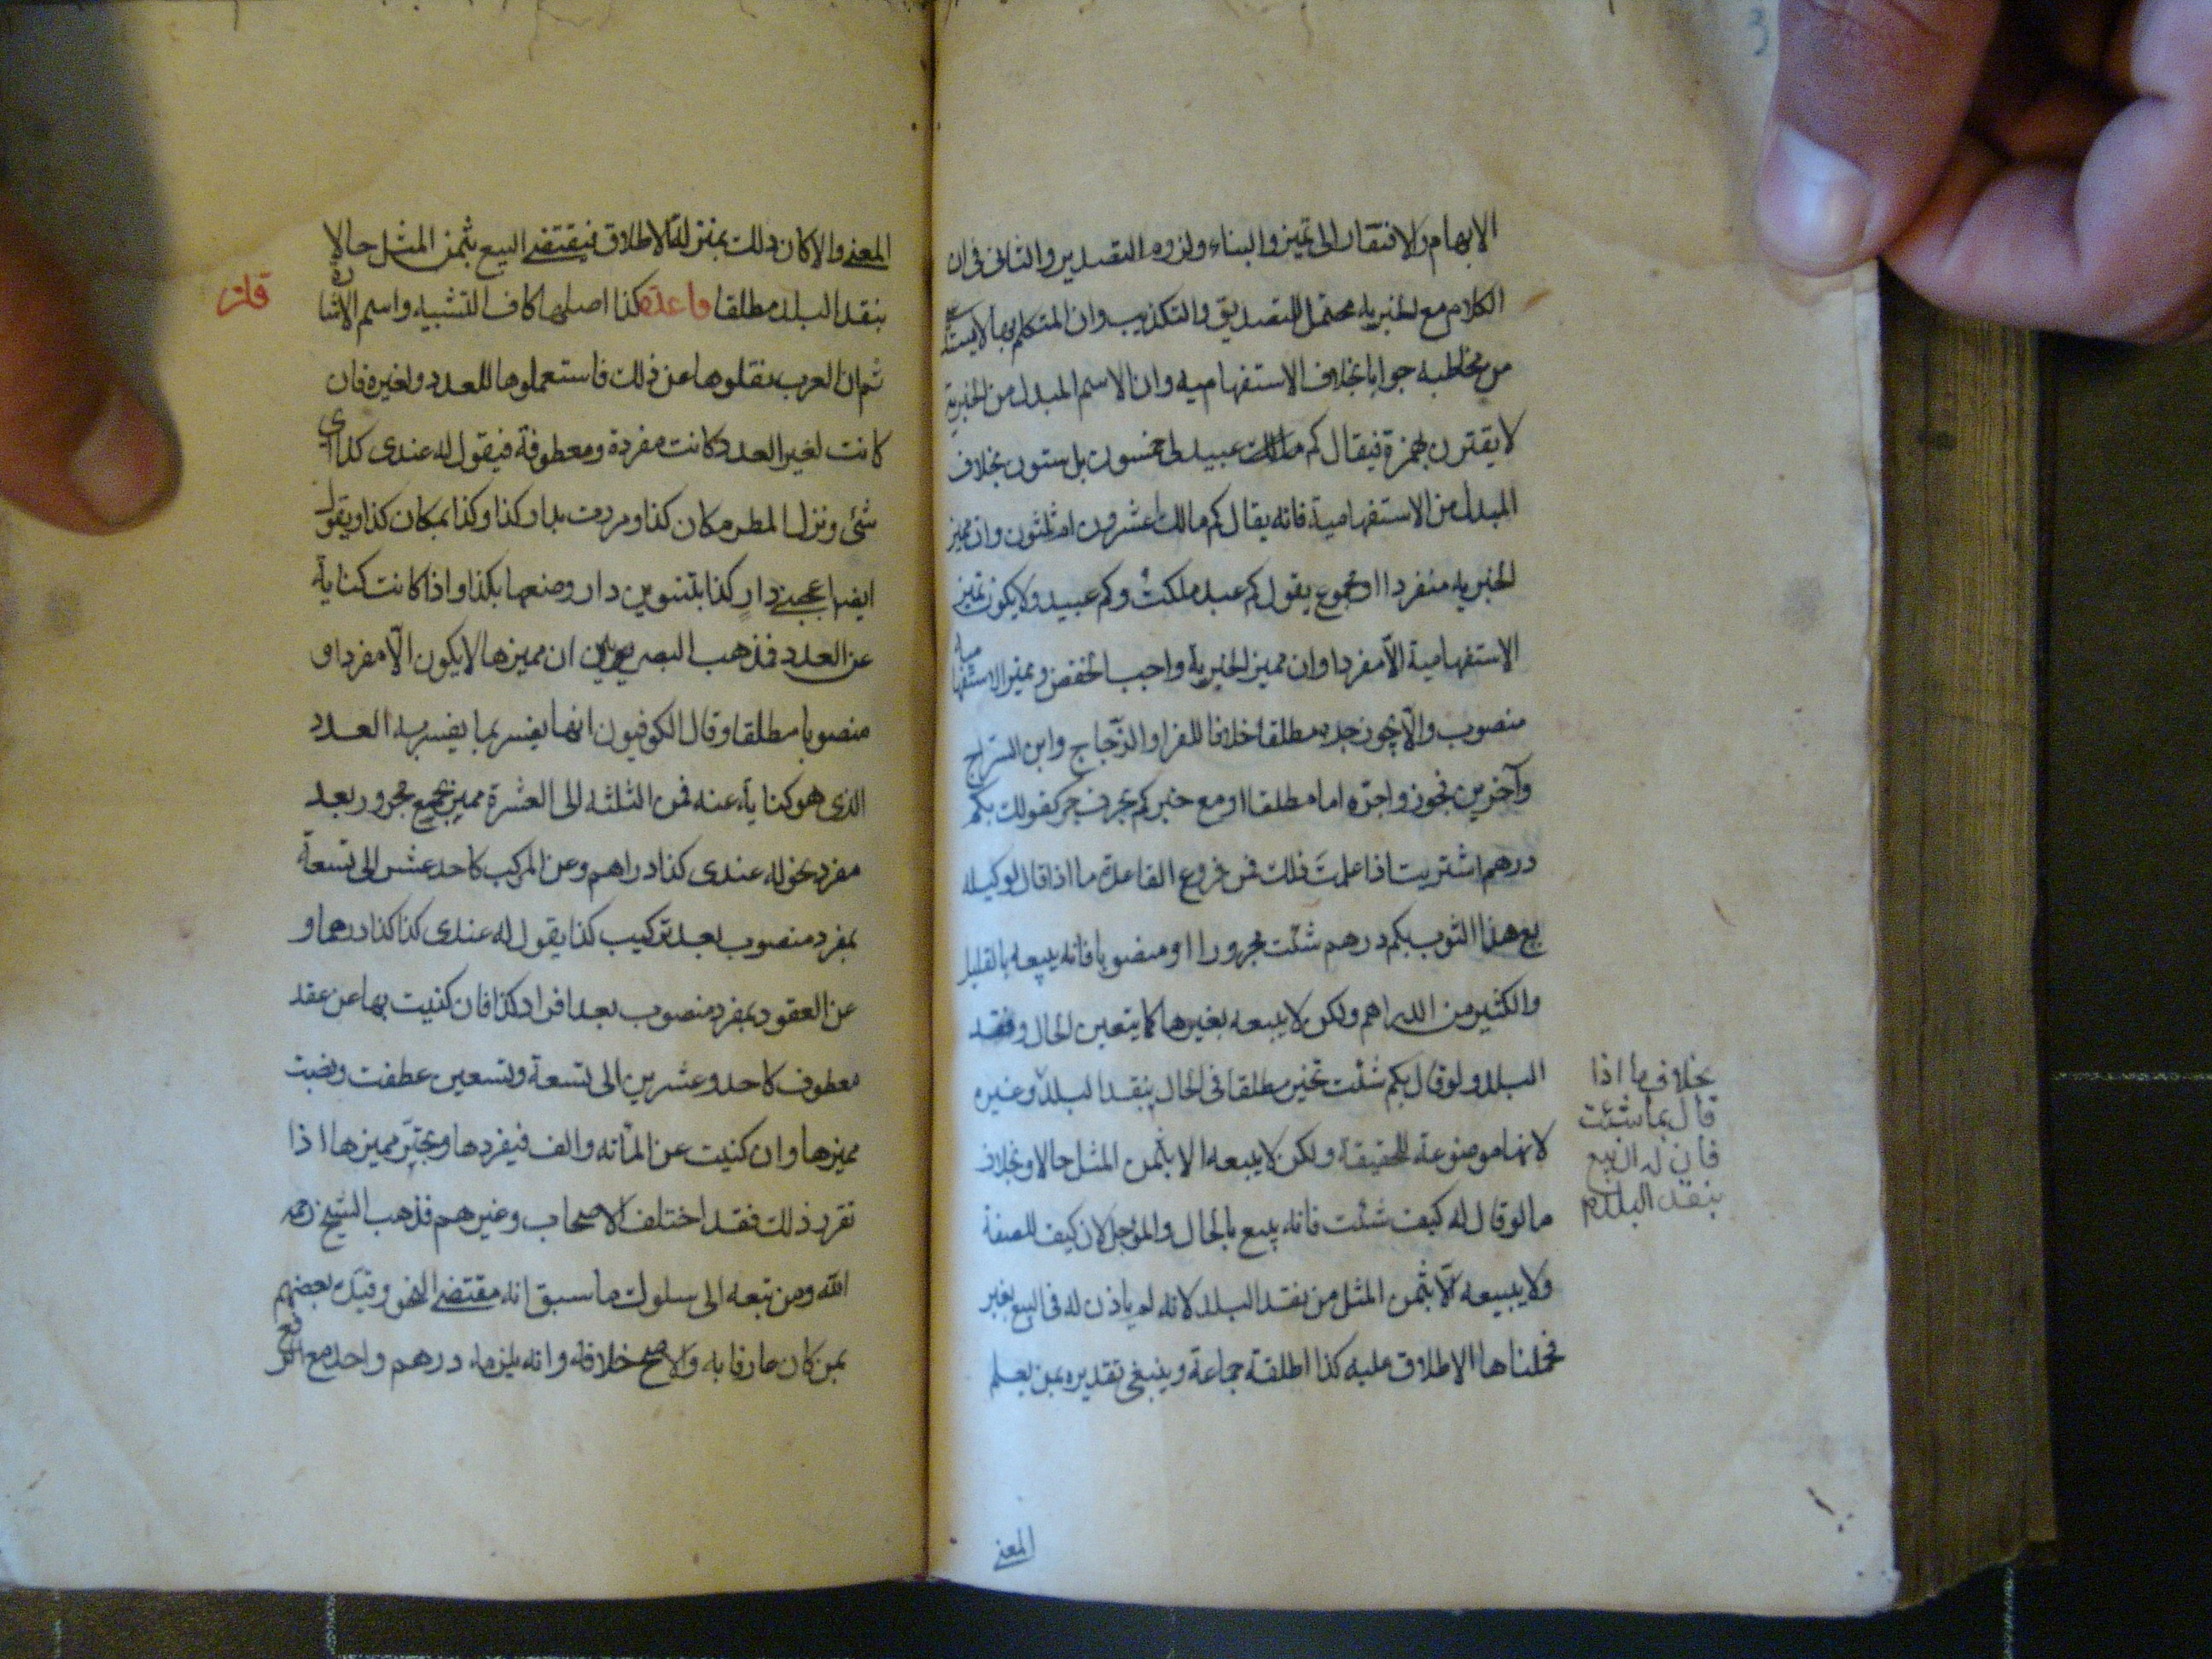 الابهام والافتقار الى تميز والبناء ولزوم التصدير والثانى فى ان
الكلام مع الخبريه محتمل للتصديق والتكذيب وان المتكلم بها لا يستدعى
من مخاطبه جوابا بخلاف الاستفهاميه وان الاسم المبدل من الخبرية
لا يقترن بهمزة فيقال كم مالك عبيد لى خمسون بل ستون بخلاف
المبدل من الاستفهامية فانه يقال كم مالك اعشرون ام ثلثون وان مميز
الخبريه منفردا او مجموع يقول كم عبد ملكت وكم عبيد ولا يكون تميز
الاستفهامية الّا مفردا وان مميز الخبرية واجب الخفض ومميز الاستفهاميه
منصوب والّا يجوز جره مطلقا خلافا للفرا والزّجاج وابن السّراج
وآخرين نجوزوا جرّه اما مطلقا او مع جر كم بحرف جر كقولك بكم
درهم اشتريت اذا علمت ذلك فمن فروع القاعدة ما اذا قال لوكيله
بع هذا الثوب بكم درهم شئت مجرورا او منصوبا فانه يبيعه بالقليل
والكثير من الدراهم ولكن لا يبيعه بغيرها كما يتعين الحال ونقد
البلد ولو قال بكم شئت تخير مطلقا فى الحال بنقد البلد وغيره
لانها موضوعة للحقيقة ولكن لا يبيعه الا بثمن المثل حالا وبخلاف
ما لو قال له كيف شئت فانه يبيع بالحال والمؤجل لان كيف للصفة
ولا يبيعه الّا بثمن المثل من نقد البلد لانه لم ياذن له فى البيع بغير
فحملناها الاطلاق عليه كذا اطلقه جماعة وينبغى تقديره بمن يعلم
بخلاف ما اذا
قال بما شئت
فان له ان يبيع
بنقد البلد
المعنى
المعنى والا كان ذلك بمنزلة الاطلاق فيقتضى البيع بثمن المثل حالا
بنقد البلد مطلقا قاعدة كذا اصلها كاف التشبيه واسم الاشارة
ثم ان العرب نقلوها عن ذلك فاستعملوها للعدد ولغيره فان
كانت لغير العدد كانت مفردة ومعطوفة فيقول له عندى كذا اى
شئ ونزل المطر مكان كذا ومررت بدار كذا وكذا بمكان كذا ويقول
ايضا عجبنى دارٍ كذا بتنوين دار وصنعها بكذا واذا كانت كناية
عن العدد فذهب البصريين ان مميزها لا يكون الّا مفردا و
منصوبا مطلقا وقال الكوفيون انها يفسر بما يفسر به العدد
الذى هو كناية عنه فمن الثلثه الى العشرة مميز بجمع مجرور بعد
مفرد نحو له عندى كذا دراهم وعن المركب كاحد عشر الى تسعة
بمفرد منصوب بعد تركيب كذا يقول له عندى كذا كذا درهما و
عن العقود بمفرد منصوب بعد افراد كذا فان كنيت بها عن عقد
معطوف كاحد وعشرين الى تسعة وتسعين عطفت ونصبت
مميزها وان كنيت عن المائه والف فيفردها وتجرّ مميزها اذا
تقرر ذلك فقد اختلف الاصحاب وغيرهم فذهب الشيخ رحمه
الله ومن تبعه الى سلوك ما سبق انه مقتضى النحو وقيّده بعضهم
بمن كان عارفا به والاصح خلافه وانه يلزمه درهم واحد مع الرفع